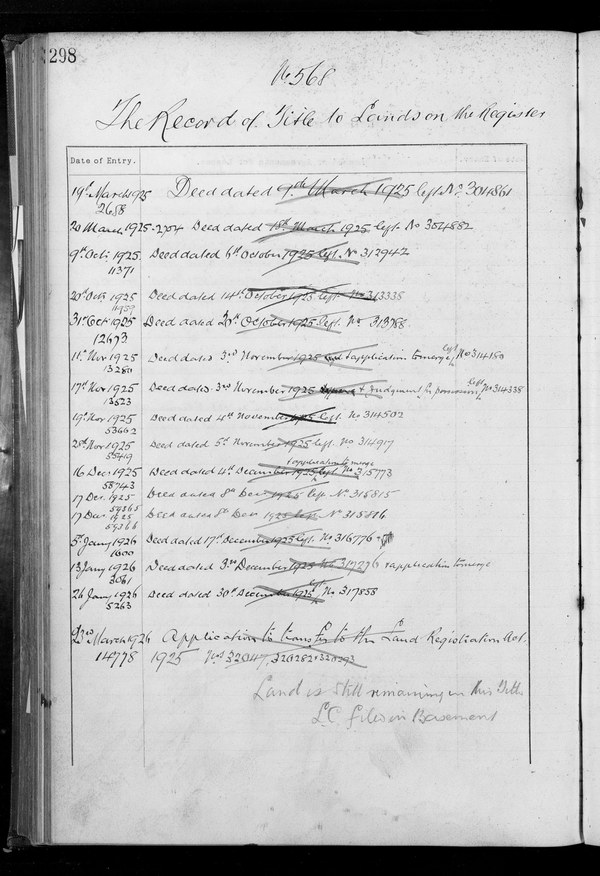 298
No 568
The Record of Title to Lands on the Register
Date of Entry.
19th March 1925 Deed dated 9th March 1925 left No. 304861
2688
20 March 1925 2704 Deed dated 18th March 1925 left No 304882
9th Oct. 1925 Deed dated 6th October 1925 left No 312942
11371
20th Oct. 1925 Deed dated 14th October 1925 left No 313335
11959
31st Oct 1925 Deed dated October 1925 left No. 313788
12673
11th Nov 1925 Deed dated 3rd November 1925 & application to merge left No 314150
13280
17th Nov 1925 Deed dated 3rd November 1925 & Judgment for possession left No 314338
13523
19th Nov 1925 Deed dated 4th November 1925 left No 314502
53662
28th Nov 1925 Deed dated 5th November 1925 left No 314917
55419
& application to merge
16 Decr 1925 Deed dated 4th December 1925 left No 315773
58743
17 Dec. 1925 Deed dated 8th Decr 1925 left No 315815
59265
17 Decr 1925 Deed dated 8th Decr 1925 left No 315816
59266
5th Jany 1926 Deed dated 17th December 1925 left No 316776
1000
13 Jany 1926 Deed dated 3rd December 1925 No 317276 & application to merge
3061
26 Jany 1926 Deed dated 30th December 1925 left No 317858
5263
22nd March 1926 Application to transfer to the Land Registration Act
14778 1925 Nos 32047, 320282 & 320293
Land is still remaining in this Title
L.C. files in Basement